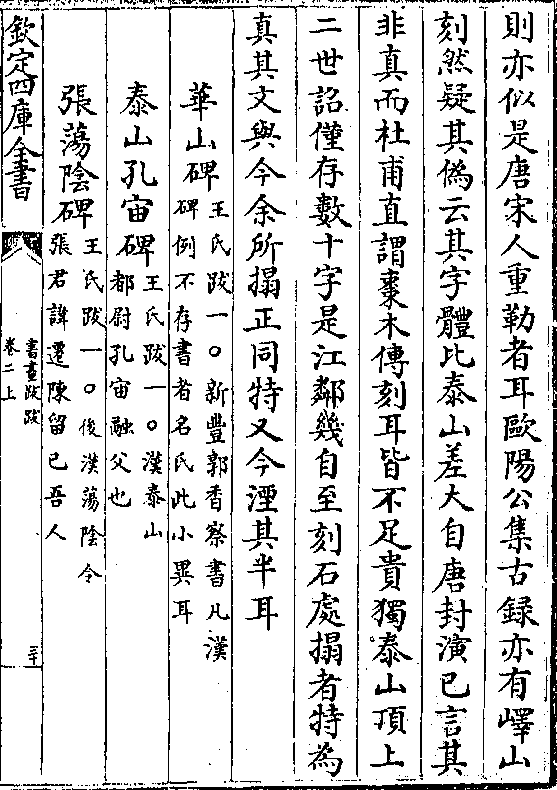 則亦似是唐宋人重勒者耳歐陽公集古録亦有嶧山
刻然疑其偽云其字體比泰山差大自唐封演已言其
非真而杜甫直謂棗木傳刻耳皆不足貴獨泰山頂上
二世詔僅存數十字是江鄰幾自至刻石處搨者特為
真其文與今余所搨正同特又今湮其半耳
華山碑王氏跋一○新豐郭香察書凡漢
碑例不存書者名氏此小異耳
泰山孔宙碑王氏跋一○漢泰山
都尉孔宙融父也
張蕩陰碑王氏跋一○後漢蕩陰令
張君諱遷陳留已吾人
欽定四庫全書
書畫跋跋
卷二上
三十